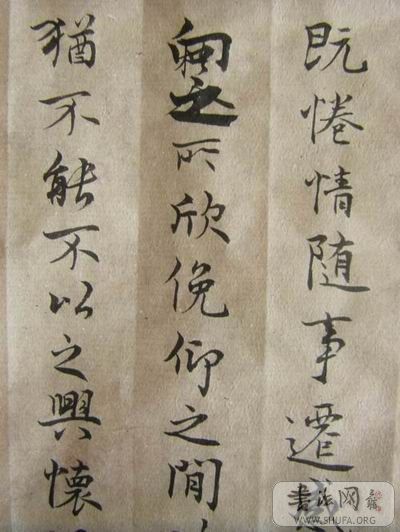 既惓情随事遷感
向之所欣俛仰之閒以
猶不能不以之興懷
書法网
WWW.SHUFA.ORG